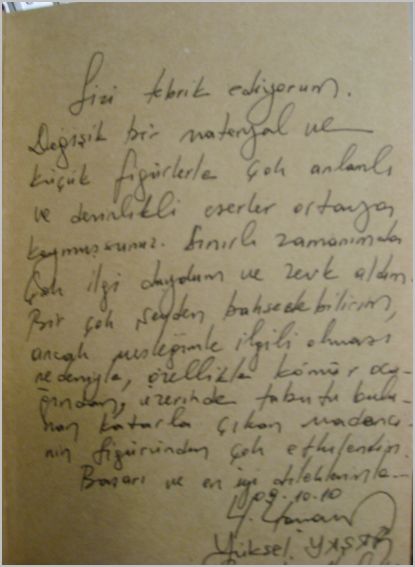 Sizi tebrik ediyorum.
Değişik bir materyal ve
küçük figürlerle çok anlamlı
ve derinlikli eserler ortaya
koymuşsunuz. Sınırlı zamanımda
çok ilgi duydum ve zevk aldım.
Bir çok şeyden bahsedebilirim,
ancak mesleğimle ilgili olması
nedeniyle, özellikle kömür oca-
ğından, üzerinde tabutu bulu-
nan katarla çıkan madenci-
nin figüründen çok etkilendim.
Başarı ve en iyi dileklerimle
09.10.10
Yüksel YAŞAR